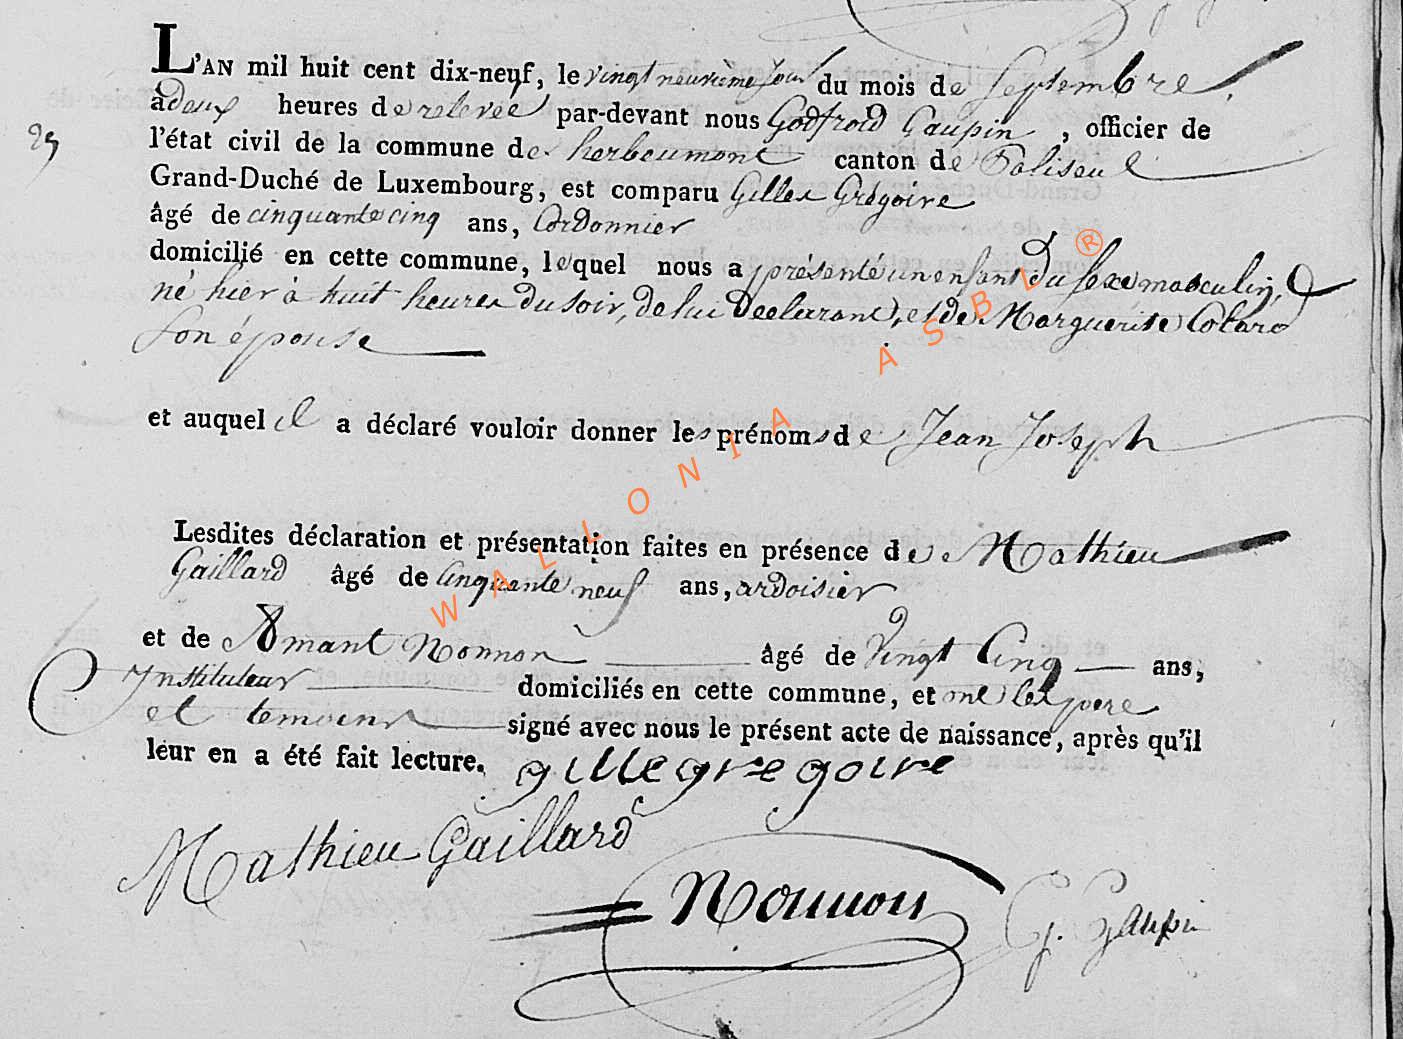 L'AN mil huit cent dix-neuf, le vingt neuvième jour du mois de Septembre,
à deux heures de relevée par-devant nous Godfroid Gaupin, officier de
l'état civil de la commune de herbeumont canton de Paliseul
Grand-Duché de Luxembourg, est comparu Gilles Grégoire
âgé de cinquante cinq ans, Cordonnier
domicilié en cette commune, lequel nous a présenté un enfant du sexe masculin,
né hier à huit heures du soir, de lui Déclarant, et de Marguerite Colard
Son épouse
et auquel il a déclaré vouloir donner les prénoms de Jean Joseph
Lesdites déclaration et présentation faites en présence de Mathieu
Gaillard âgé de Cinquante neuf ans, ardoisier
et de Amant Nonnon âgé de Vingt Cinq ans,
Instituteur domiciliés en cette commune, et ont les père
et temoins signé avec nous le présent acte de naissance, après qu'il
leur en a été fait lecture. gille gregoire
Mathieu Gaillard
Nonnon
G. Gaupin
29
WALLONIA ASBL ®